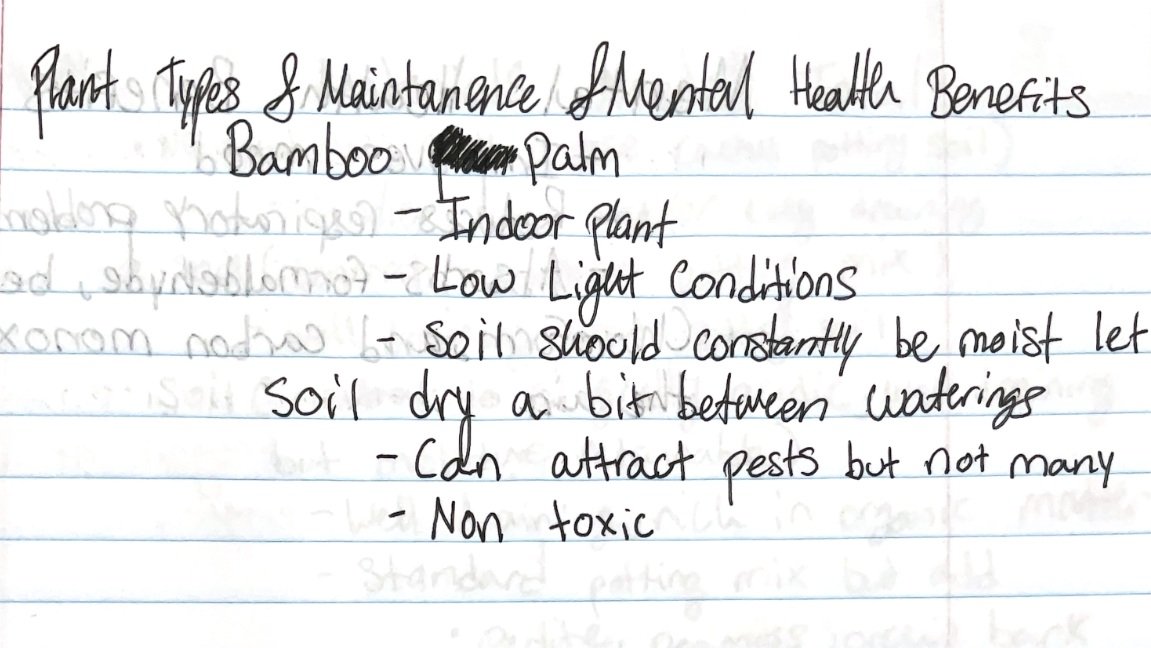 Plant Types & Maintanence & Mental Health Benefits
Bamboo Palm
- Indoor plant
- Low Light Conditions
- Soil should constantly be moist let
Soil dry a bit between waterings
- Can attract pests but not many
- Non toxic